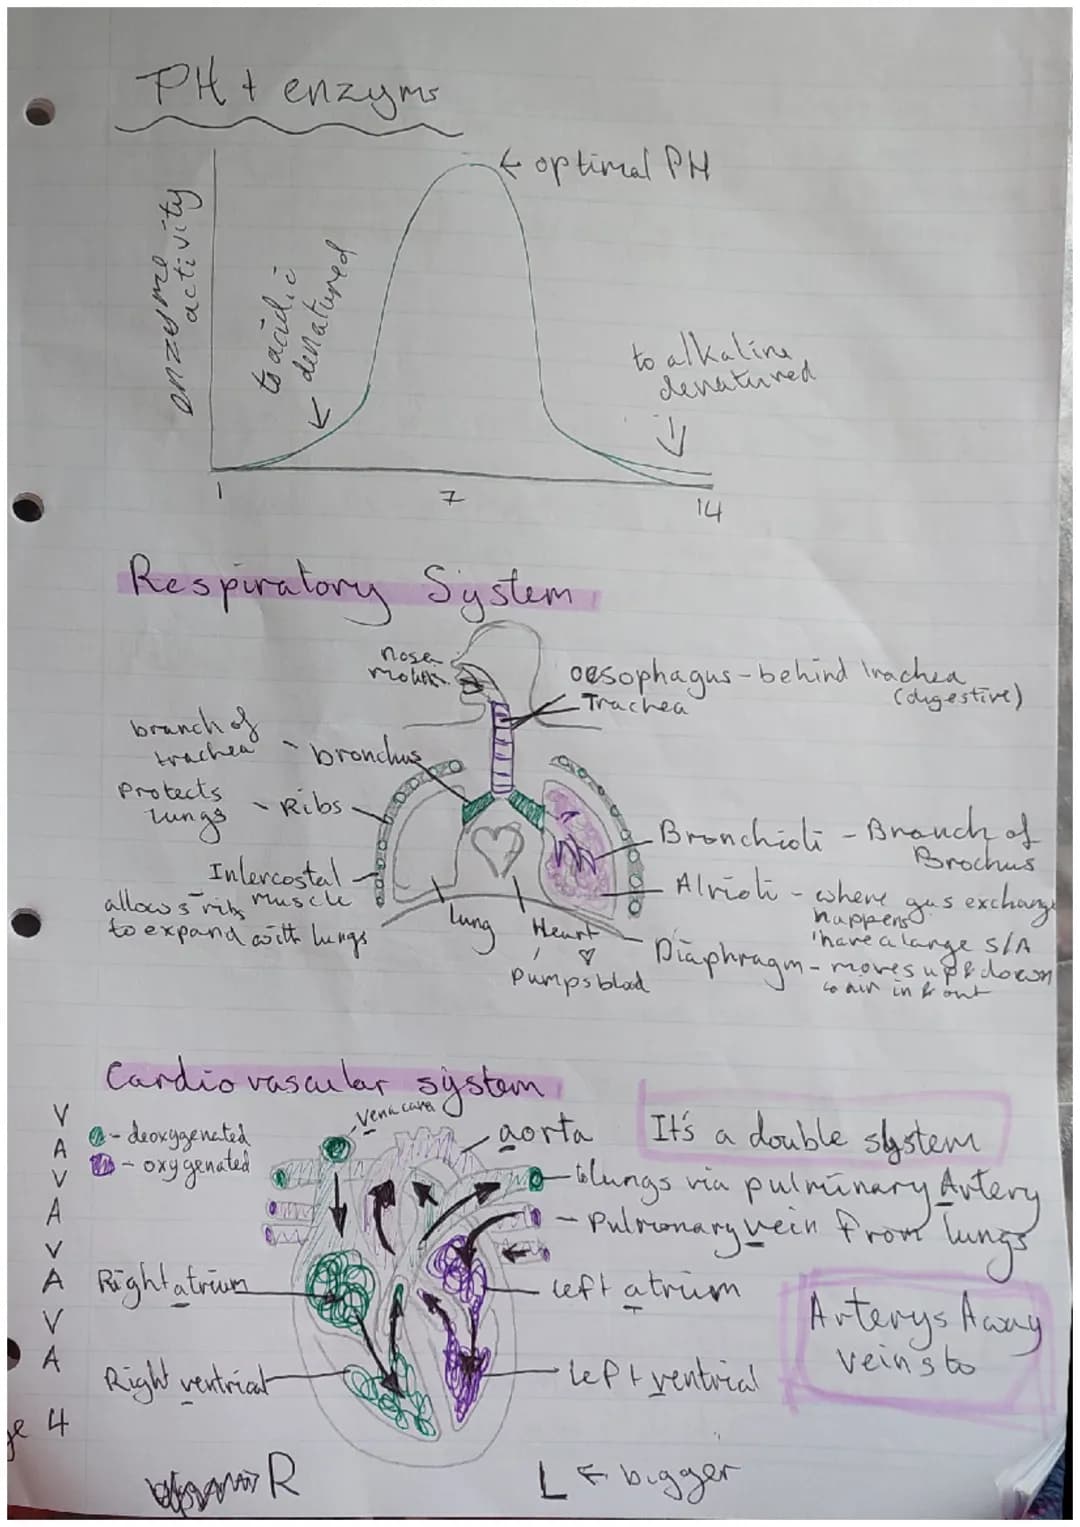 PH + enzyms
← optimal PH
enzyme
activity
to acidic
denatured
to alkaline
denatured
1
7
14
Respiratory System
nose
mouth
oesophagus - behind trachea
(digestive)
Trachea
branch of
trachea - bronchus
Protects
lungs - Ribs
Bronchioli - Branch of
Brochus
Intercostal
muscle
allows ribs
to expand with lungs
Alvioli - where gas exchange
happens
have a large S/A
lung
Heart
pumps blood
Diaphragm - moves up & down
so air in & out
Cardiovascular system
V
A
V
A
V
A
V
A
- deoxygenated
- oxygenated
vena cava
aorta
It's a double system
to lungs via pulminary Artery
- Pulmonary vein from lungs
Right atrium
left atrium
Arterys Away
veins to
Right ventrical
left ventrial
ge 4
R
L ← bigger